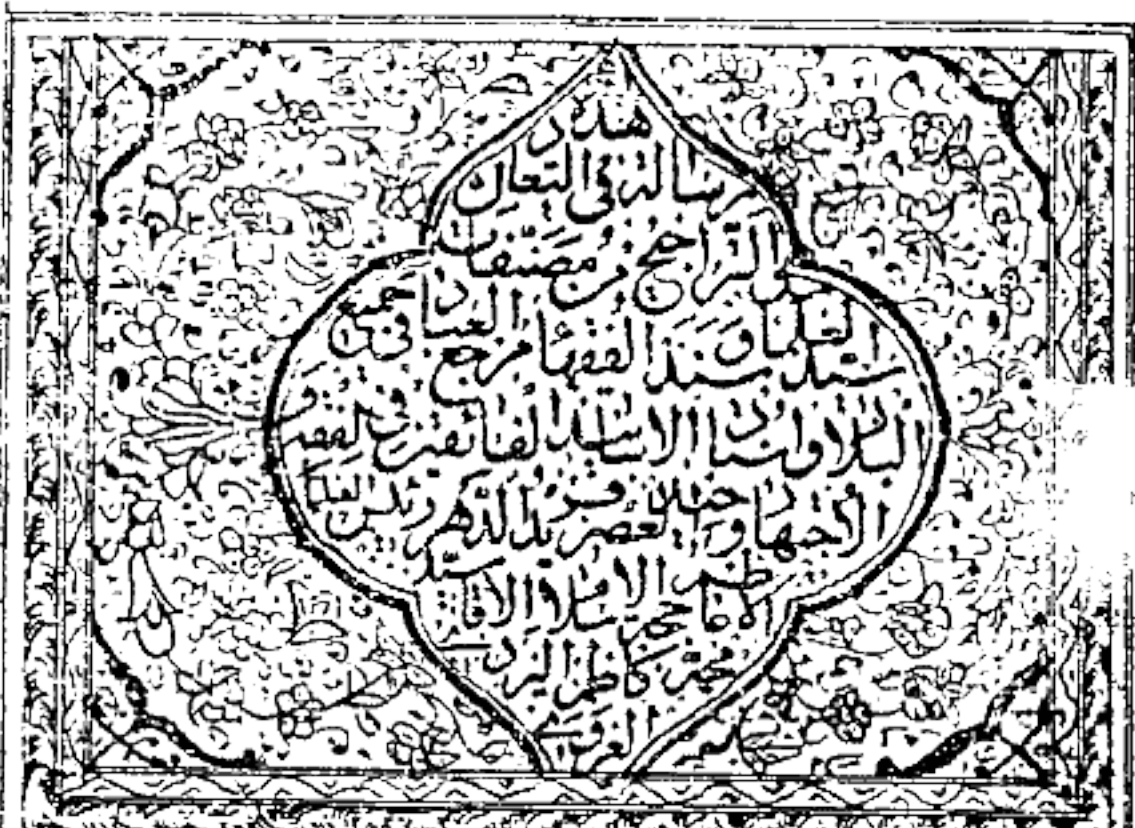 هذه
رسالة في التعادل
والتراجيح من مصنفات
سيد العلماء وسند الفقهاء مرجع العباد في جميع
البلاد واستاد الاساتيد الفائقين في الفقه و
الاجتهاد وحيد العصر فريد الدهر رئيس العلماء
الاعاظم حجة الاسلام الاقا السيد
محمد كاظم اليزدي
الغروي